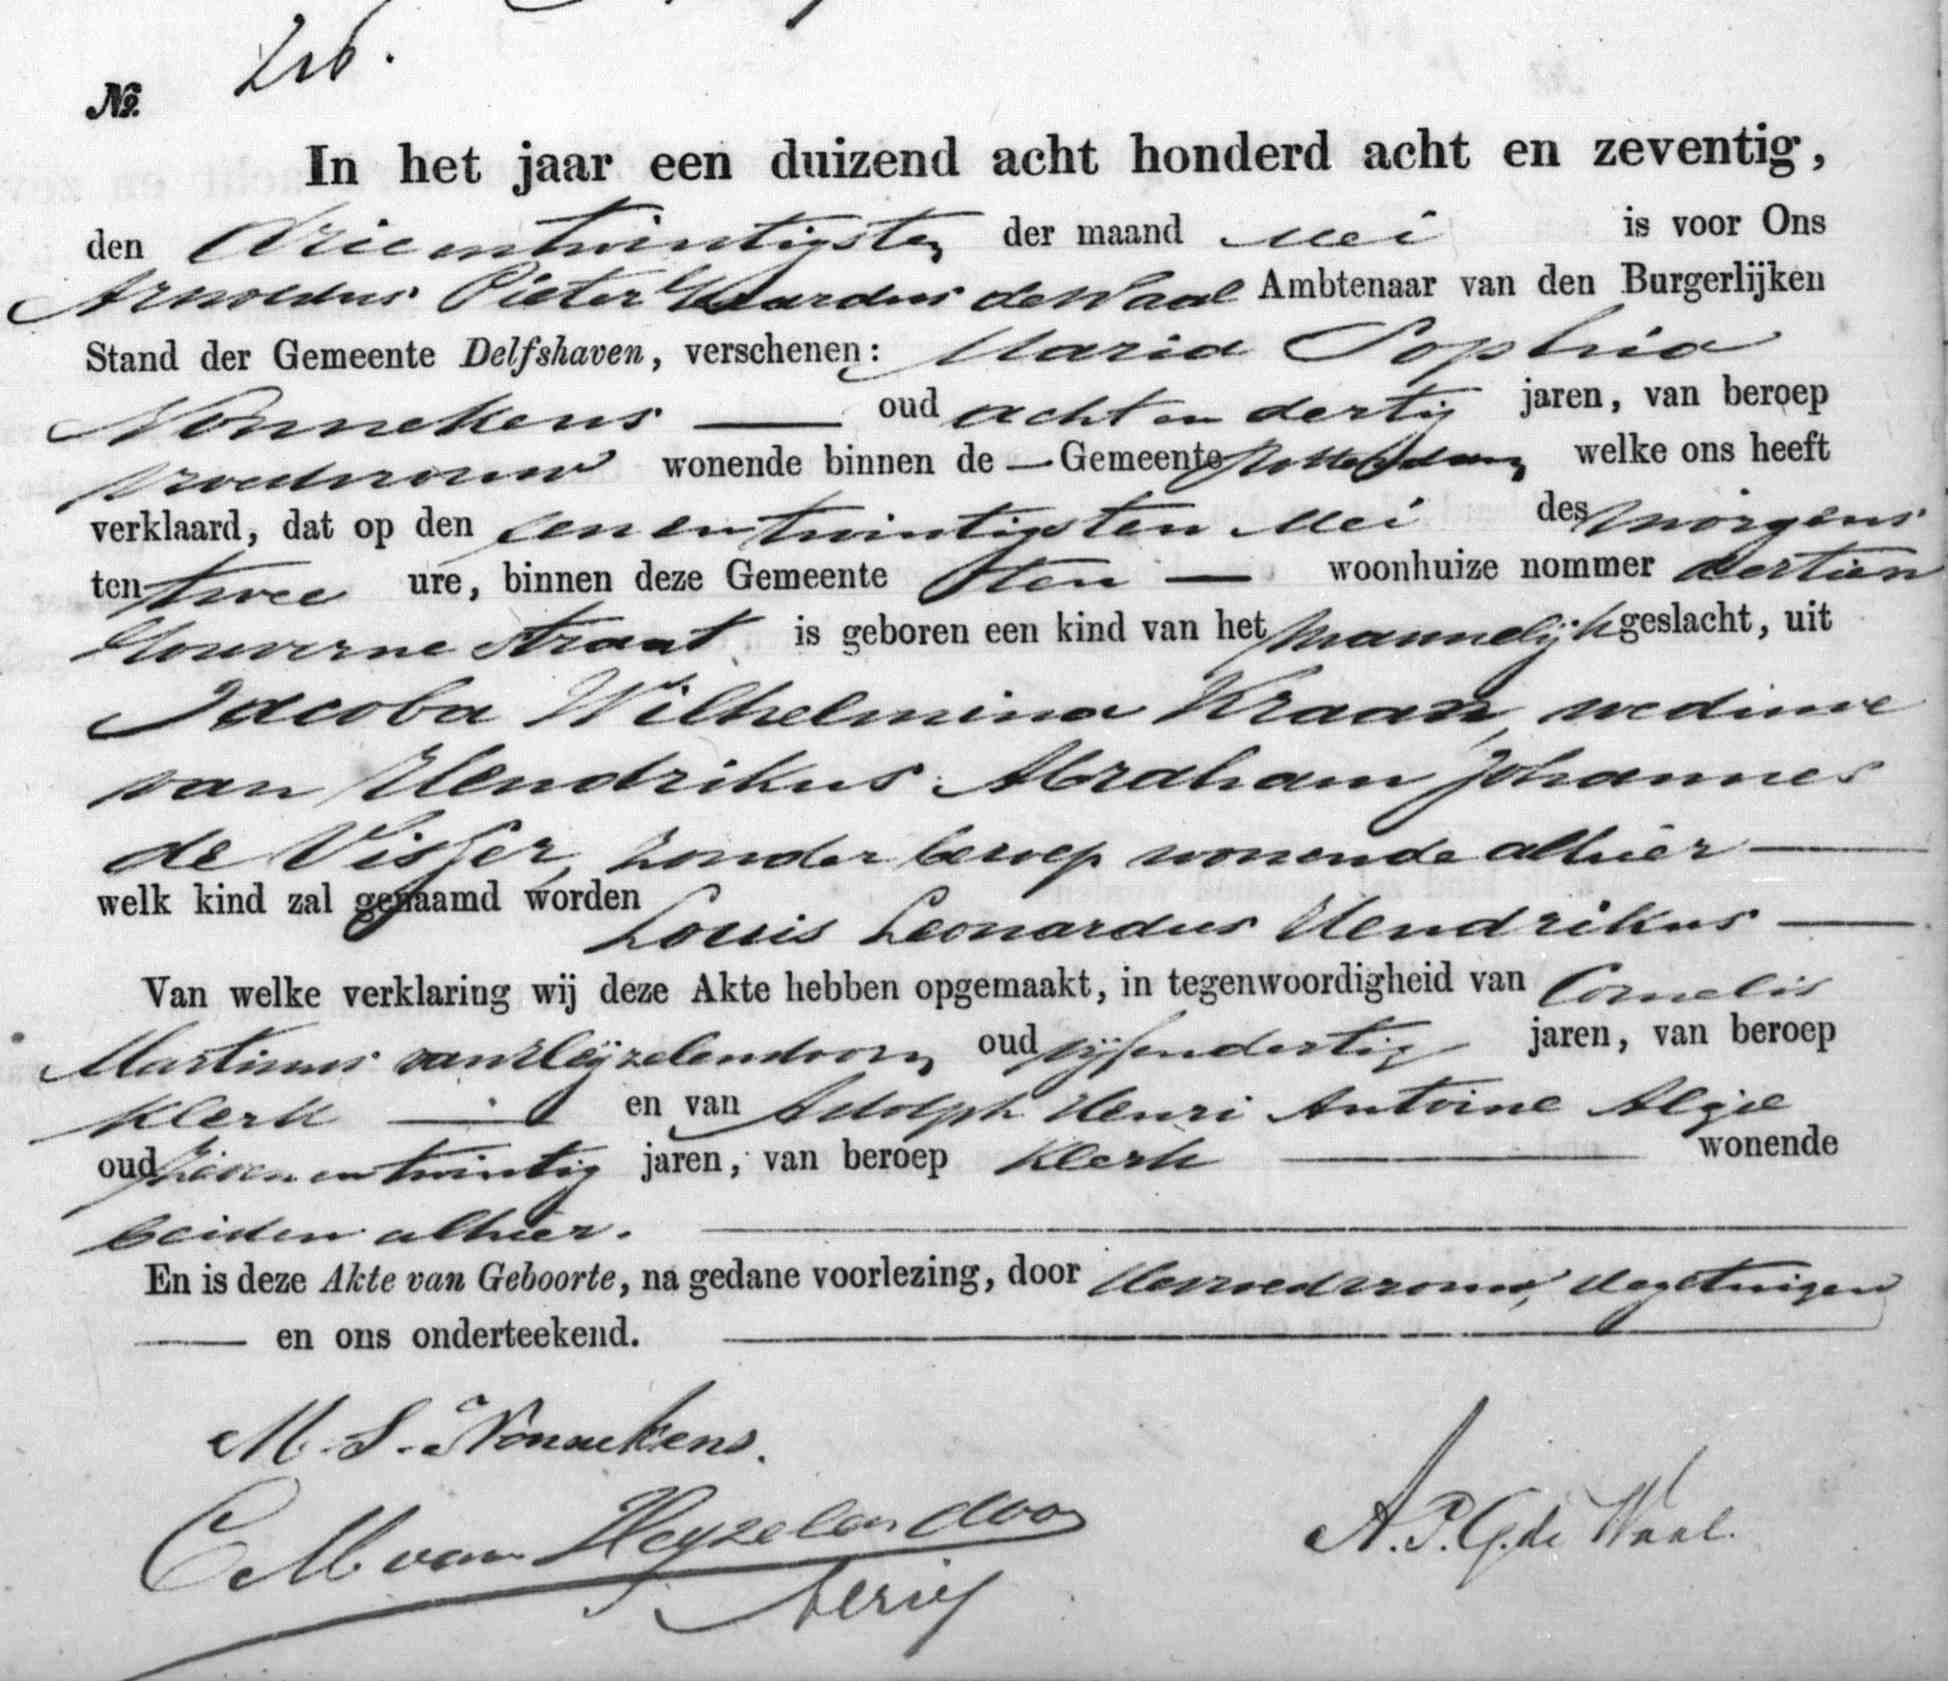 № 216.
In het jaar een duizend acht honderd acht en zeventig,
den drieentwintigsten der maand Mei is voor Ons
Arnoldus Pieter Gerardus de Waal Ambtenaar van den Burgerlijken
Stand der Gemeente Delfshaven, verschenen: Maria Sophia
Nonnekens — oud acht en dertig jaren, van beroep
vroedvrouw wonende binnen de — Gemeente Rotterdam welke ons heeft
verklaard, dat op den een en twintigsten Mei des morgens
ten twee ure, binnen deze Gemeente ten — woonhuize nommer dertien
Gouvernestraat is geboren een kind van het mannelijk geslacht, uit
Jacoba Wilhelmina Kraan, weduwe
van Hendrikus Abraham Johannes
de Visser, zonder beroep wonende alhier —
welk kind zal genaamd worden Louis Leonardus Hendrikus —
Van welke verklaring wij deze Akte hebben opgemaakt, in tegenwoordigheid van Cornelis
Martinus van Heijzelendoorn oud vijfendertig jaren, van beroep
Klerk — en van Adolph Henri Antoine Algie
oud zeven en twintig jaren, van beroep Klerk — wonende
beiden alhier. —
En is deze Akte van Geboorte, na gedane voorlezing, door de vroedvrouw, de getuigen
— en ons onderteekend. —
M. S. Nonnekens.
C M van Heyzelendoorn
A. P. G. de Waal.